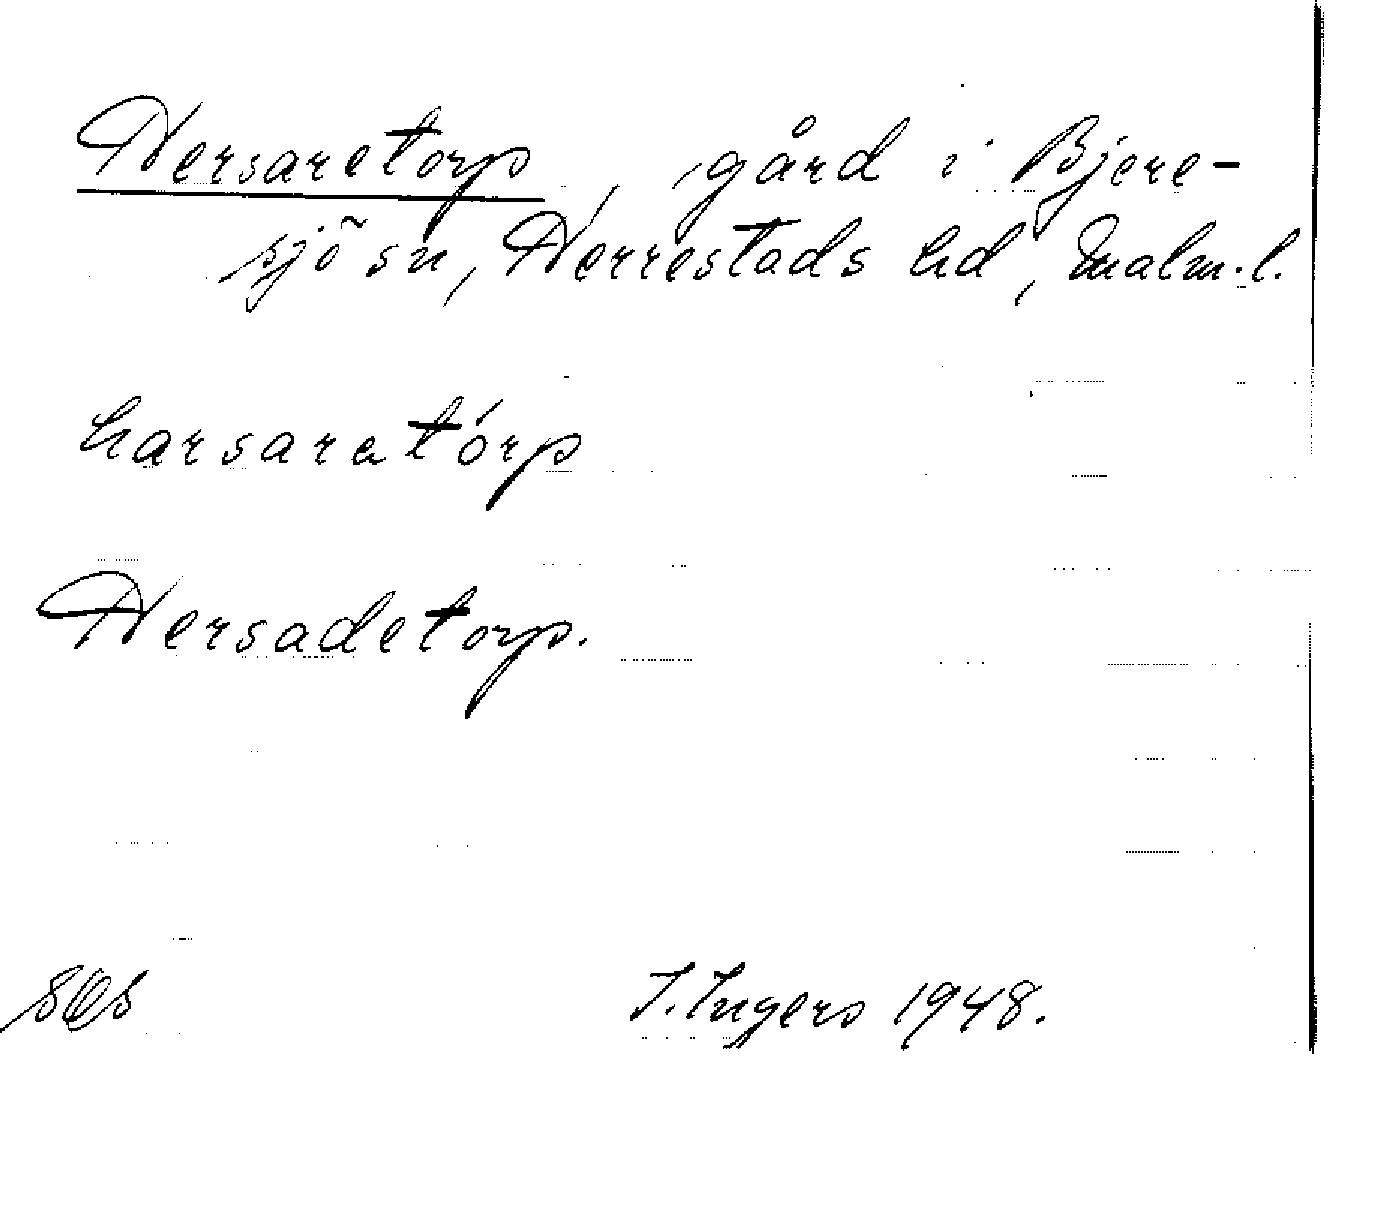 Hersaretorp, gård i Bjere-
sjö sn, Herrestads hd, Malm.l.
harsaratórp
Hersadetorp.
I. Ingers 1948.